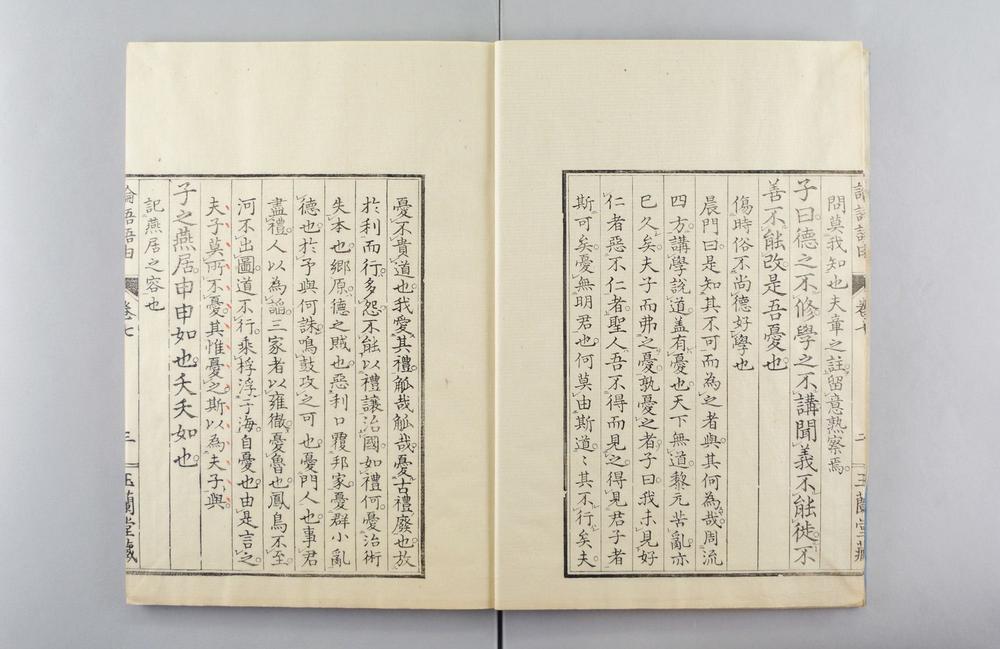 論語語由 卷七 二 玉蘭堂藏
問莫我知也夫章之註留意熟察焉
子曰德之不脩學之不講聞義不能徙不
善不能改是吾憂也
傷時俗不尚德好學也
晨門曰是知其不可而為之者與其何為哉周流
四方講學說道蓋有憂也天下無道黎元苦亂亦
已久矣夫子而弗之憂孰憂之者子曰我未見好
仁者惡不仁者聖人吾不得而見之得見君子者
斯可矣憂無明君也何莫由斯道〻其不行矣夫
憂不貴道也我愛其禮觚哉觚哉憂古禮廢也放
於利而行多怨不能以禮讓治國如禮何憂治術
失本也鄉原德之賊也惡利口覆邦家憂群小亂
德也於予與何誅鳴鼓攻之可也憂門人也事君
盡禮人以為諂三家者以雍徹憂魯也鳳鳥不至
河不出圖道不行乘桴浮于海自憂也由是言之
夫子莫所不憂其惟憂之斯以為夫子與
子之燕居申申如也夭夭如也
記燕居之容也
論語語由 卷七 三 玉蘭堂藏